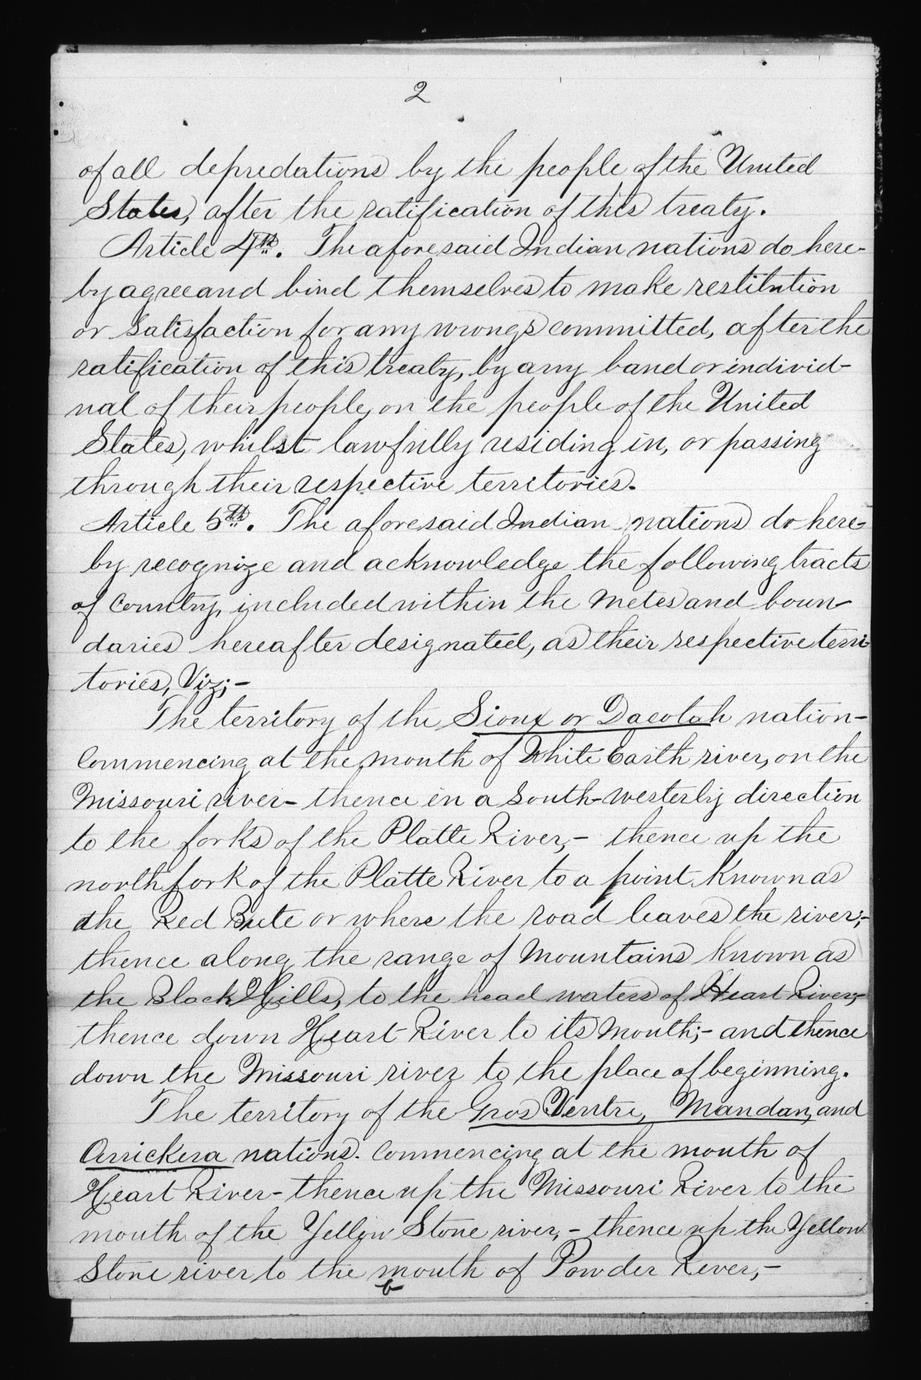 2
of all depredations by the people of the United
States, after the ratification of this treaty.
Article 4th. The aforesaid Indian nations do here-
by agree and bind themselves to make restitution
or satisfaction for any wrongs committed, after the
ratification of this treaty, by any band or individ-
ual of their people, on the people of the United
States, whilst lawfully residing in, or passing
through their respective territories.
Article 5th. The aforesaid Indian nations do here-
by recognize and acknowledge the following tracts
of country, included within the metes and boun-
daries hereafter designated, as their respective terri-
tories, Viz;-
The territory of the Sioux or Dacotah nation-
Commencing at the mouth of White Earth river, on the
Missouri river- thence in a South-westerly direction
to the forks of the Platte River,- thence up the
north fork of the Platte River to a point known as
the Red Bute or where the road leaves the river;-
thence along the range of Mountains known as
the Black Hills, to the head waters of Heart River;-
thence down Heart River to its mouth;- and thence
down the Missouri river to the place of beginning.
The territory of the Gros Ventre, Mandan, and
Arrickera nations. Commencing at the mouth of
Heart River- thence up the Missouri River to the
mouth of the Yellow Stone river,- thence up the Yellow
Stone river to the mouth of Powder River,-